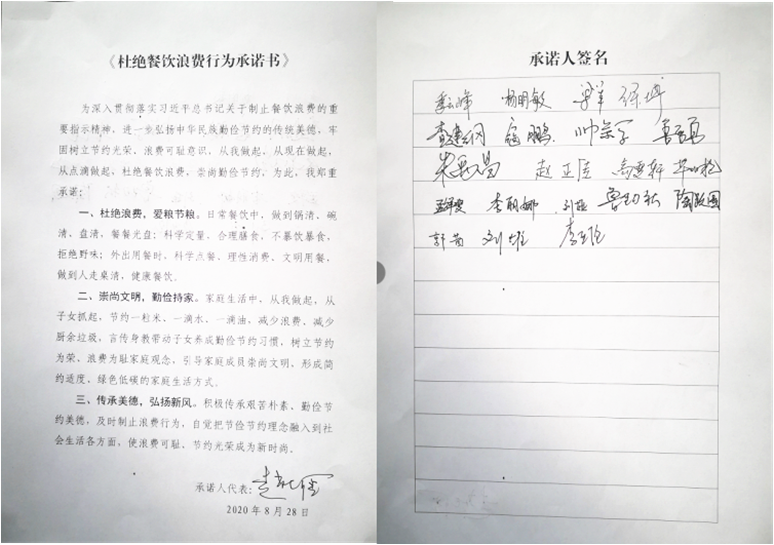 《杜绝餐饮浪费行为承诺书》
为深入贯彻落实习近平总书记关于制止餐饮浪费的重
要指示精神，进一步弘扬中华民族勤俭节约的传统美德，牢
固树立节约光荣、浪费可耻意识，从我做起，从现在做起，
从点滴做起，杜绝餐饮浪费，崇尚勤俭节约，为此，我郑重
承诺：
一、杜绝浪费，爱粮节粮。日常餐饮中，做到锅清、碗
清、盘清，餐餐光盘；科学定量，合理膳食，不暴饮暴食，
拒绝野味；外出用餐时，科学点餐，理性消费，文明用餐，
做到人走桌清，健康餐饮。
二、崇尚文明，勤俭持家。家庭生活中，从我做起，从
子女抓起，节约一粒米、一滴水、一滴油，减少浪费、减少
厨余垃圾，言传身教带动子女养成勤俭节约习惯，树立节约
为荣、浪费为耻家庭观念，引导家庭成员崇尚文明、形成简
约适度、绿色低碳的家庭生活方式。
三、传承美德，弘扬新风。积极传承艰苦朴素、勤俭节
约美德，及时制止浪费行为，自觉把节俭节约理念融入到社
会生活各方面，使浪费可耻、节约光荣成为新时尚。
承诺人代表：
2020年8月28日
承诺人签名
杨明敏
鹏
赵正佳
李丽娜
刘雄